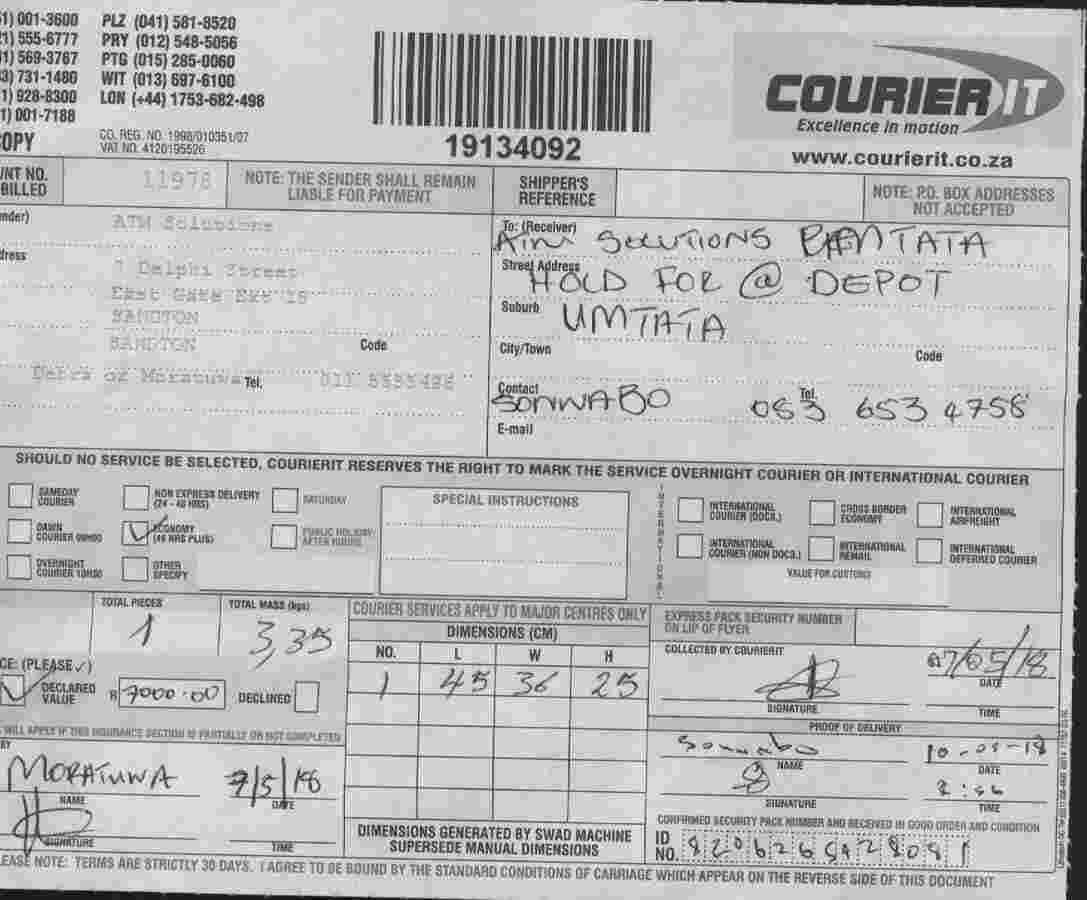 1) 001-3600 PLZ (041) 581-8520
1) 555-6777 PRY (012) 548-5056
1) 569-3767 PTG (015) 285-0060
3) 731-1480 WIT (013) 697-6100
1) 928-8300 LON (+44) 1753-682-498
1) 001-7188
COPY
CO. REG. NO. 1998/010351/07
VAT NO. 4120195526
19134092
COURIERIT
Excellence in motion
www.courierit.co.za
UNT NO.
BILLED
11978
NOTE: THE SENDER SHALL REMAIN
LIABLE FOR PAYMENT
SHIPPER'S
REFERENCE
NOTE: P.O. BOX ADDRESSES
NOT ACCEPTED
nder)
ATM Solutions
dress
7 Delphi Street
East Gate Ext 18
SANDTON
SANDTON
Code
Debra or Moratuwa Tel.
To: (Receiver)
ATM SOLUTIONS UMTATA
Street Address
HOLD FOR @ DEPOT
Suburb
UMTATA
City/Town
Code
Contact
SONWABO
Tel.
083 653 4758
E-mail
SHOULD NO SERVICE BE SELECTED, COURIERIT RESERVES THE RIGHT TO MARK THE SERVICE OVERNIGHT COURIER OR INTERNATIONAL COURIER
SAMEDAY
COURIER
NON EXPRESS DELIVERY
(24 - 48 HRS)
SATURDAY
DAWN
COURIER 09H00
ECONOMY
(48 HRS PLUS)
PUBLIC HOLIDAY
AFTER HOURS
OVERNIGHT
COURIER 10H30
OTHER
SPECIFY
SPECIAL INSTRUCTIONS
INTERNATIONAL
INTERNATIONAL
COURIER (DOCS.)
CROSS BORDER
ECONOMY
INTERNATIONAL
AIRFREIGHT
INTERNATIONAL
COURIER (NON DOCS.)
INTERNATIONAL
REMAIL
INTERNATIONAL
DEFERRED COURIER
VALUE FOR CUSTOMS
TOTAL PIECES
1
TOTAL MASS (kgs)
3,35
CE: (PLEASE ✓)
DECLARED
VALUE
R 7000.00
DECLINED
WILL APPLY IF THIS INSURANCE SECTION IS PARTIALLY OR NOT COMPLETED
BY
MORATUWA
NAME
7/5/18
DATE
SIGNATURE
TIME
COURIER SERVICES APPLY TO MAJOR CENTRES ONLY
DIMENSIONS (CM)
NO. L W H
1 45 36 25
DIMENSIONS GENERATED BY SWAD MACHINE
SUPERSEDE MANUAL DIMENSIONS
EXPRESS PACK SECURITY NUMBER
ON LIP OF FLYER
COLLECTED BY COURIERIT
SIGNATURE
07/05/18
DATE
TIME
PROOF OF DELIVERY
Sonwabo
NAME
10-05-18
DATE
SIGNATURE
TIME
CONFIRMED SECURITY PACK NUMBER AND RECEIVED IN GOOD ORDER AND CONDITION
ID
NO.
LEASE NOTE: TERMS ARE STRICTLY 30 DAYS. I AGREE TO BE BOUND BY THE STANDARD CONDITIONS OF CARRIAGE WHICH APPEAR ON THE REVERSE SIDE OF THIS DOCUMENT